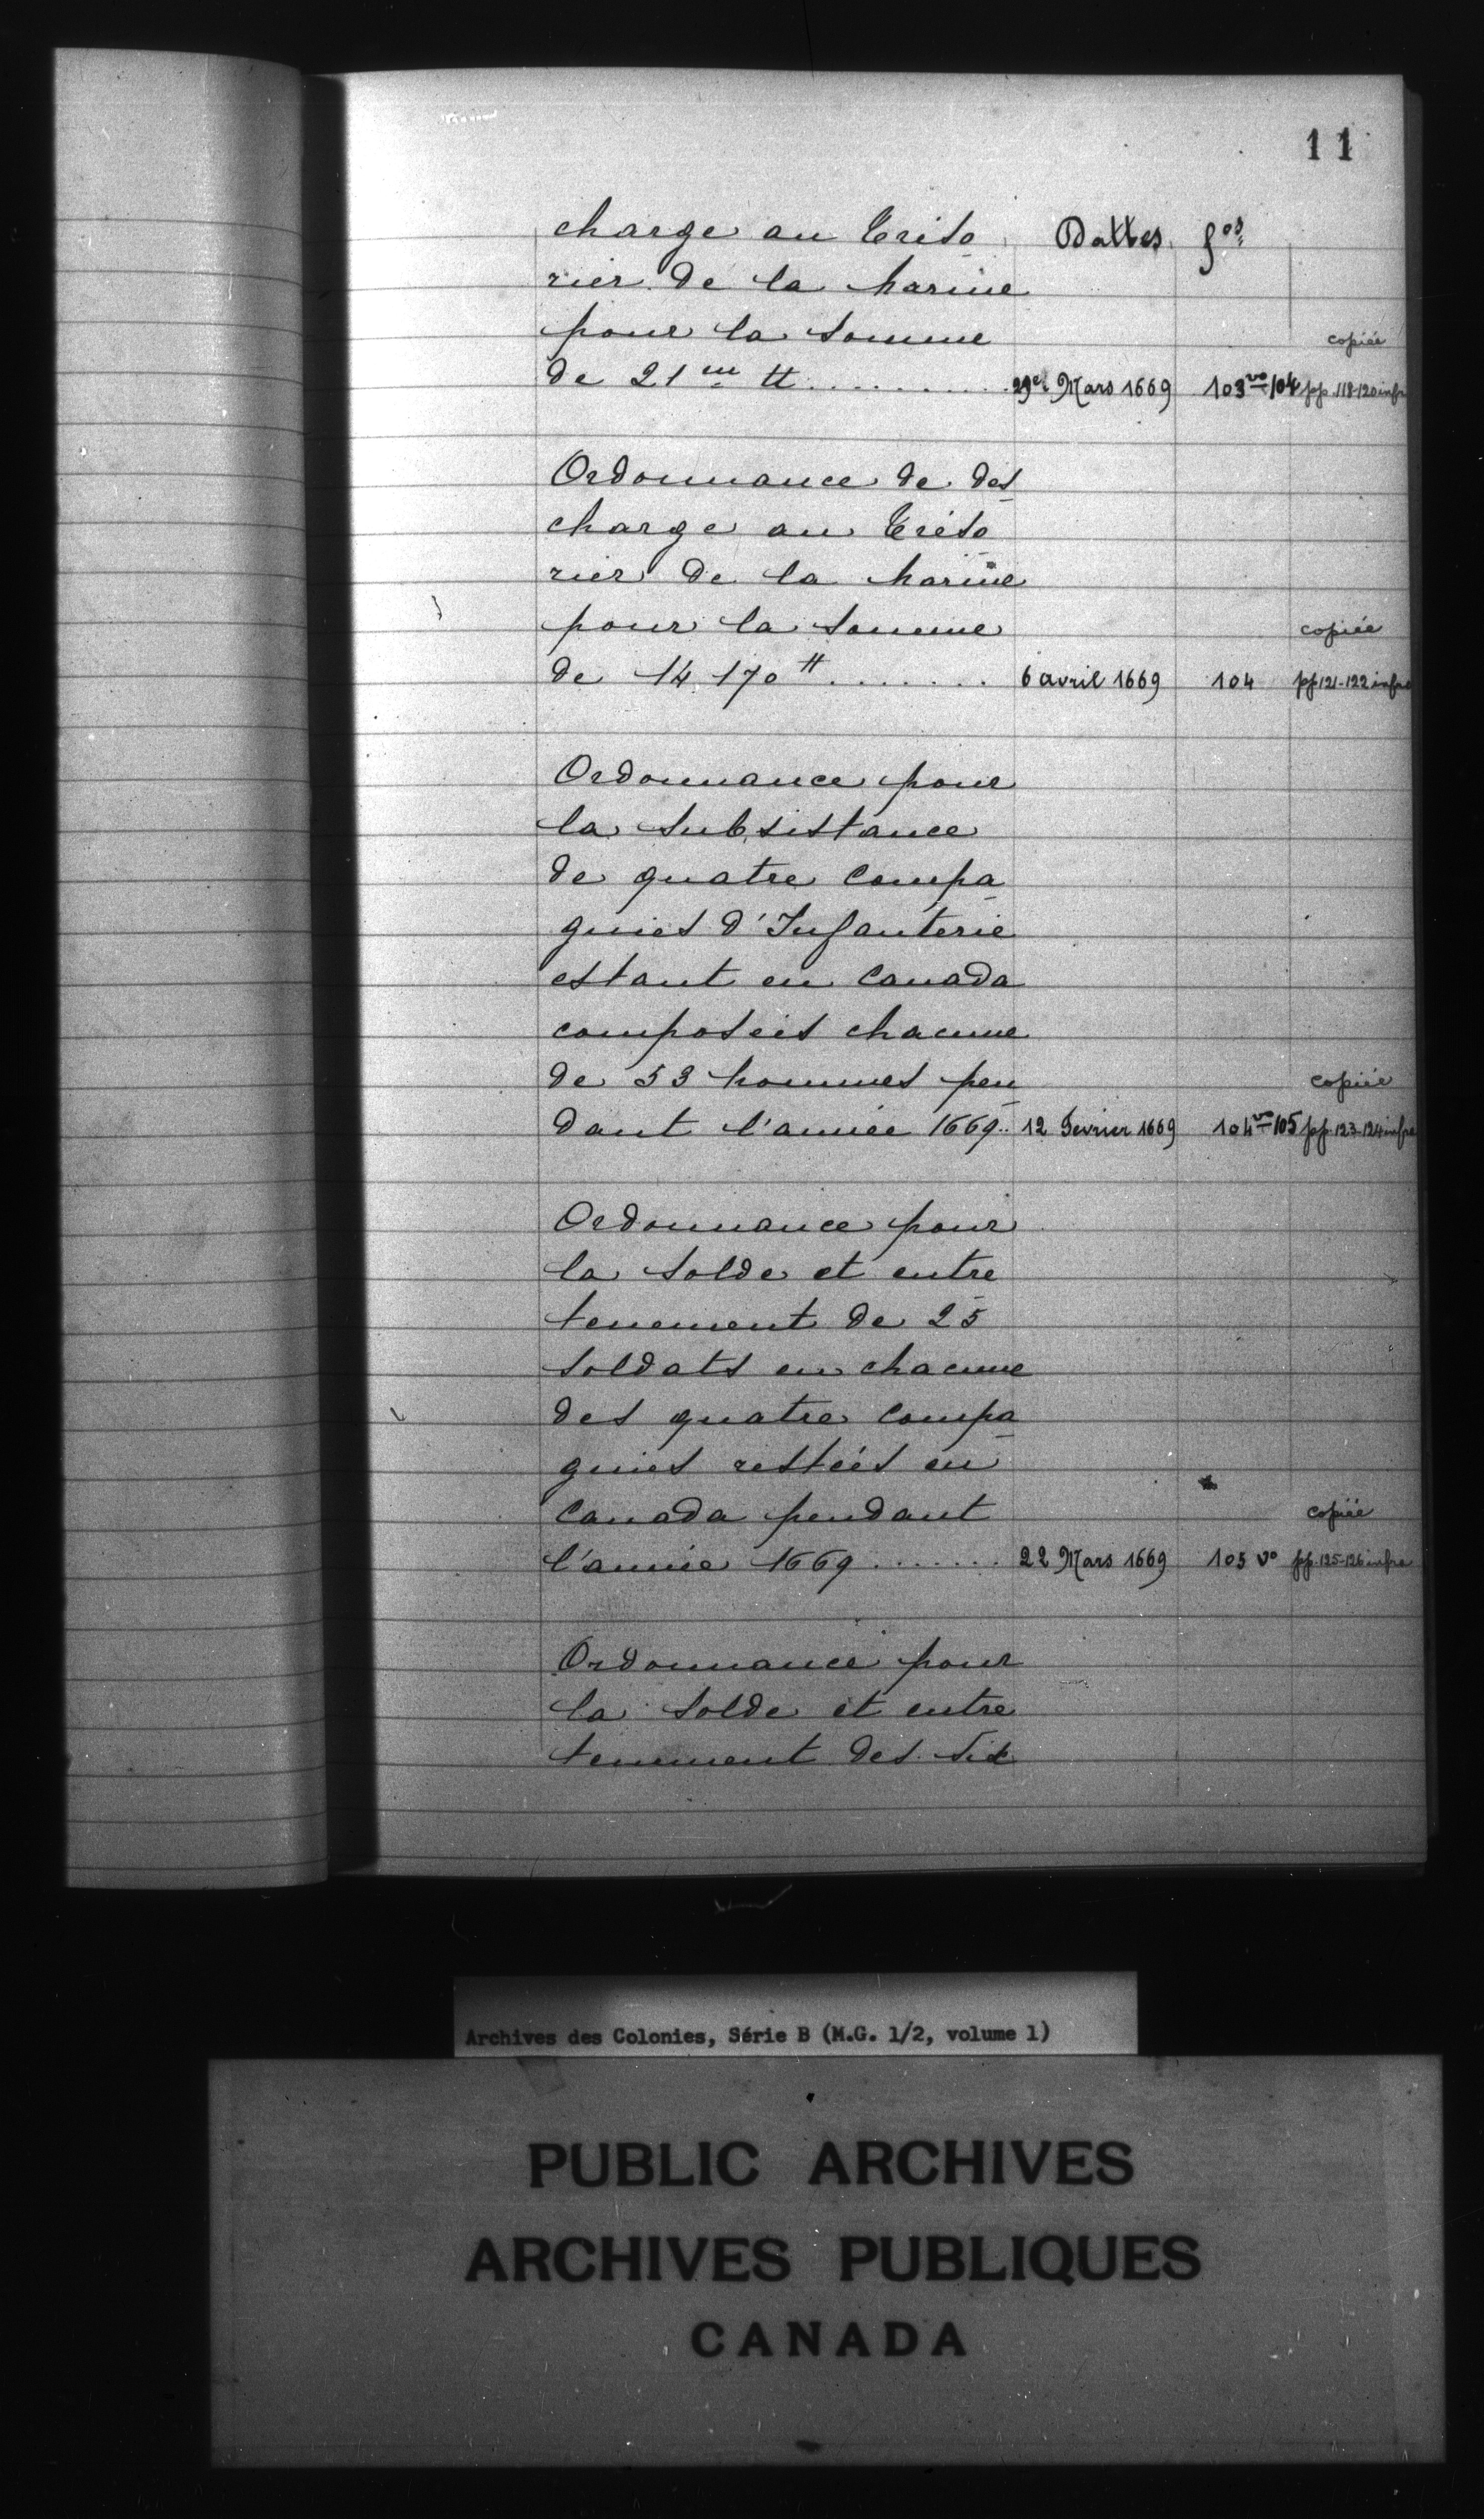 11
charge au Tréso Dattes fos
rier de la Marine
pour la somme copiée
de 21 m tt .......... 29e Mars 1669 103 vo 104 pp. 118-120 infra
Ordonnance de des
charge au Tréso
rier de la Marine
pour la somme copiée
de 14 170 tt ....... 6 avril 1669 104 pp 121-122 infra
Ordonnance pour
la subsistance
de quatre Compa
gnies d'Infanterie
estant en Canada
composées chacune
de 53 hommes pen copiée
dant l'année 1669.. 12 Fevrier 1669 104 vo 105 pp. 123-124 infra
Ordonnance pour
la solde et entre
tenement de 25
soldats en chacune
des quatre Compa
gnies restées en
Canada pendant copiée
l'année 1669 ....... 22 Mars 1669 105 vo pp. 125-126 infra
Ordonnance pour
la solde et entre
tenement des six
Archives des Colonies, Série B (M.G. 1/2, volume 1)
PUBLIC ARCHIVES
ARCHIVES PUBLIQUES
CANADA